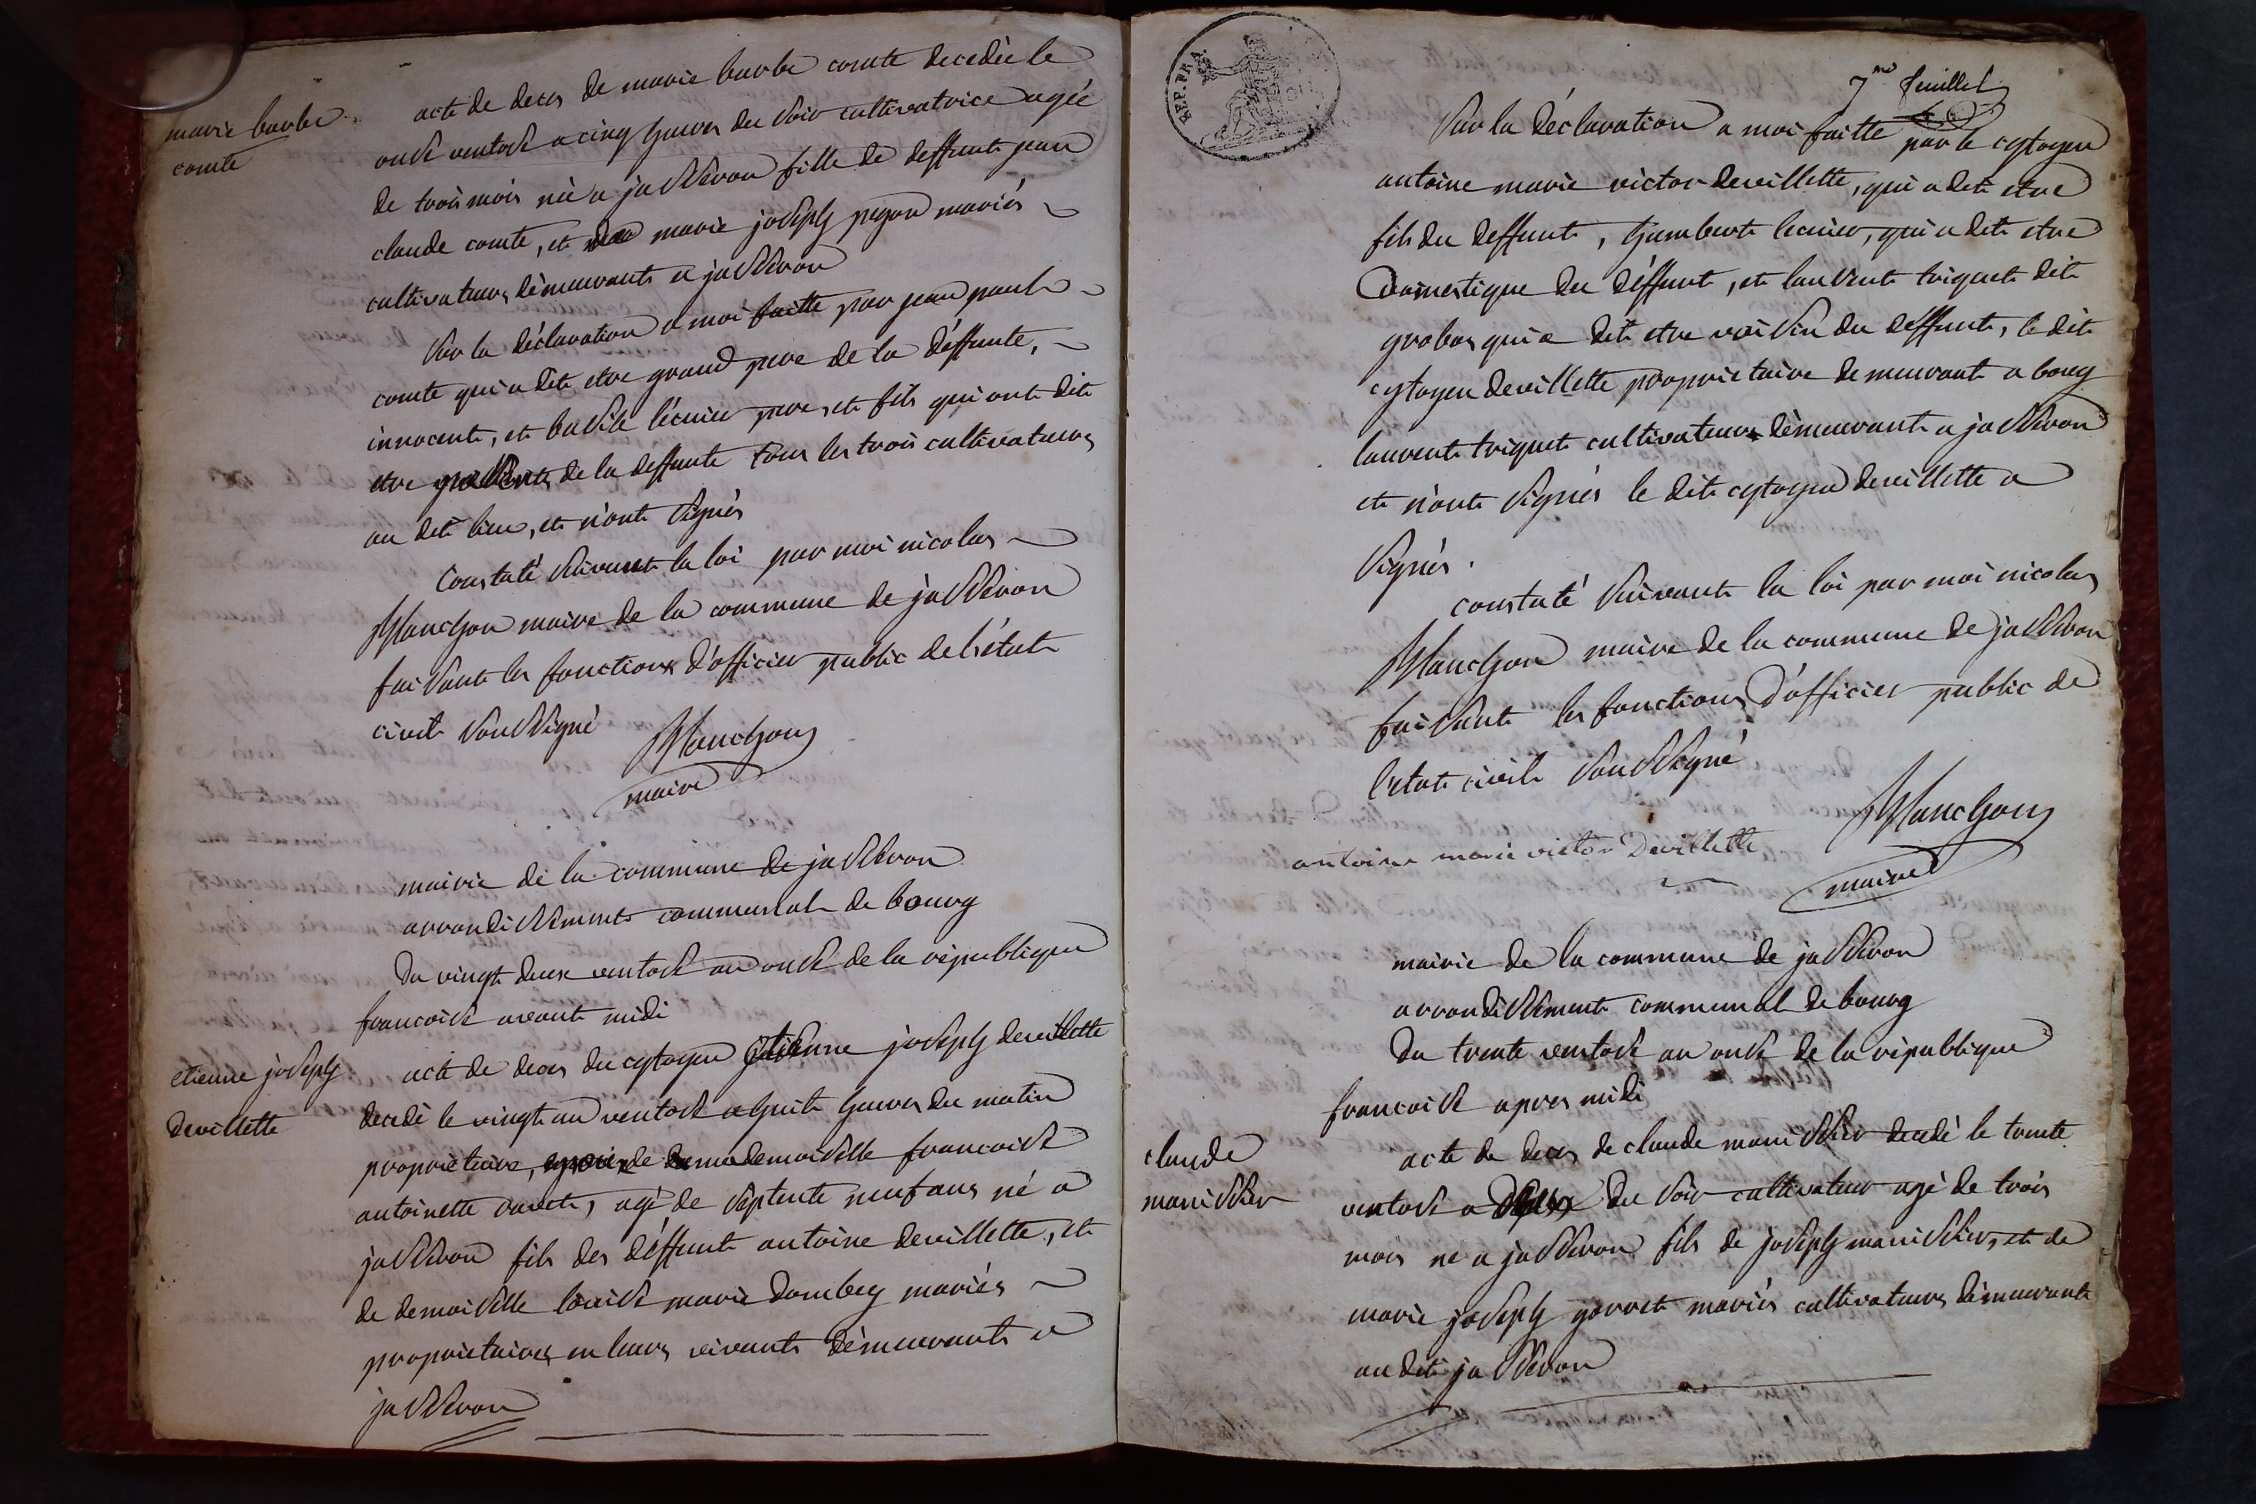 marie barbe
comte
acte de deces de marie barbe comte decedée le
onse ventose a cinq heures du soir cultivatrice agée
de trois mois née a jasseron fille de deffunt jean
claude comte, et de marie joseph pegon mariés
cultivateurs démeurants a jasseron
Sur la déclaration a moi faitte par jean paul
comte qui a dit etre grand pere de la déffunte,
innocent, et basile lécuier pere, et fils qui ont dit
etre de la deffunte tous les trois cultivateurs
au dit lieu, et n'ont signés
Constaté suivant la loi par moi nicolas
Manchon maire de la commune de jasseron
faisant les fonctions d'officier public de l'état
civil soussigné
Manchon
maire
mairie de la commune de jasseron
arrondissement communal de bourg
Du vingt deux ventose an onse de la république
francoise avant midi
etienne joseph
devillette
acte de deces du cytoyen etienne joseph devillette
decedé le vingt un ventose a huit heures du matin
propriétaire, epoux de mademoiselle francoise
antoinette , agé de septente neuf ans né a
jasseron fils des déffunt antoine devillette, et
de demoiselle louise marie Dombey mariés
proprietaires en leurs vivants démeurants a
jasseron
REP. FRA.
7me feuillet
Sur la déclaration a moi faitte par le cytoyen
antoine marie victor devillette, qui a dit etre
fils du deffunt, humbert lecuier, qui a dit etre
Domestique du déffunt, et laurent triquet dit
grobas qui a dit etre voisin du deffunt, le dit
cytoyen devillette propriétaire demeurant a bourg
laurent triquet cultivateurs démeurant a jasseron
et n'ont signés le dit cytoyen devillette a
signés.
constaté suivant la loi par moi nicolas
Manchon maire de la commune de jasseron
faisant les fonctions d'officier public de
l'etat civil soussigné
Manchon
antoine marie victor Devillette
maire
mairie de la commune de jasseron
arrondissement communal de bourg
Du trente ventose an onse de la république
francoise apres midi
claude
manissier
acte de deces de claude manissier decedé le trente
ventose a du soir cultivateur agé de trois
mois ne a jasseron fils de joseph manissier, et de
marie joseph gorret mariés cultivateurs démeurants
au dit jasseron